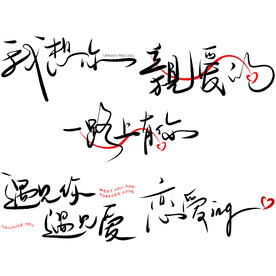 我想你
I always miss you
親愛的
一路上有你
遇见你
MEET YOU AND
FOREVER LOVE
BECAUSE YOU
遇见爱
恋爱ing